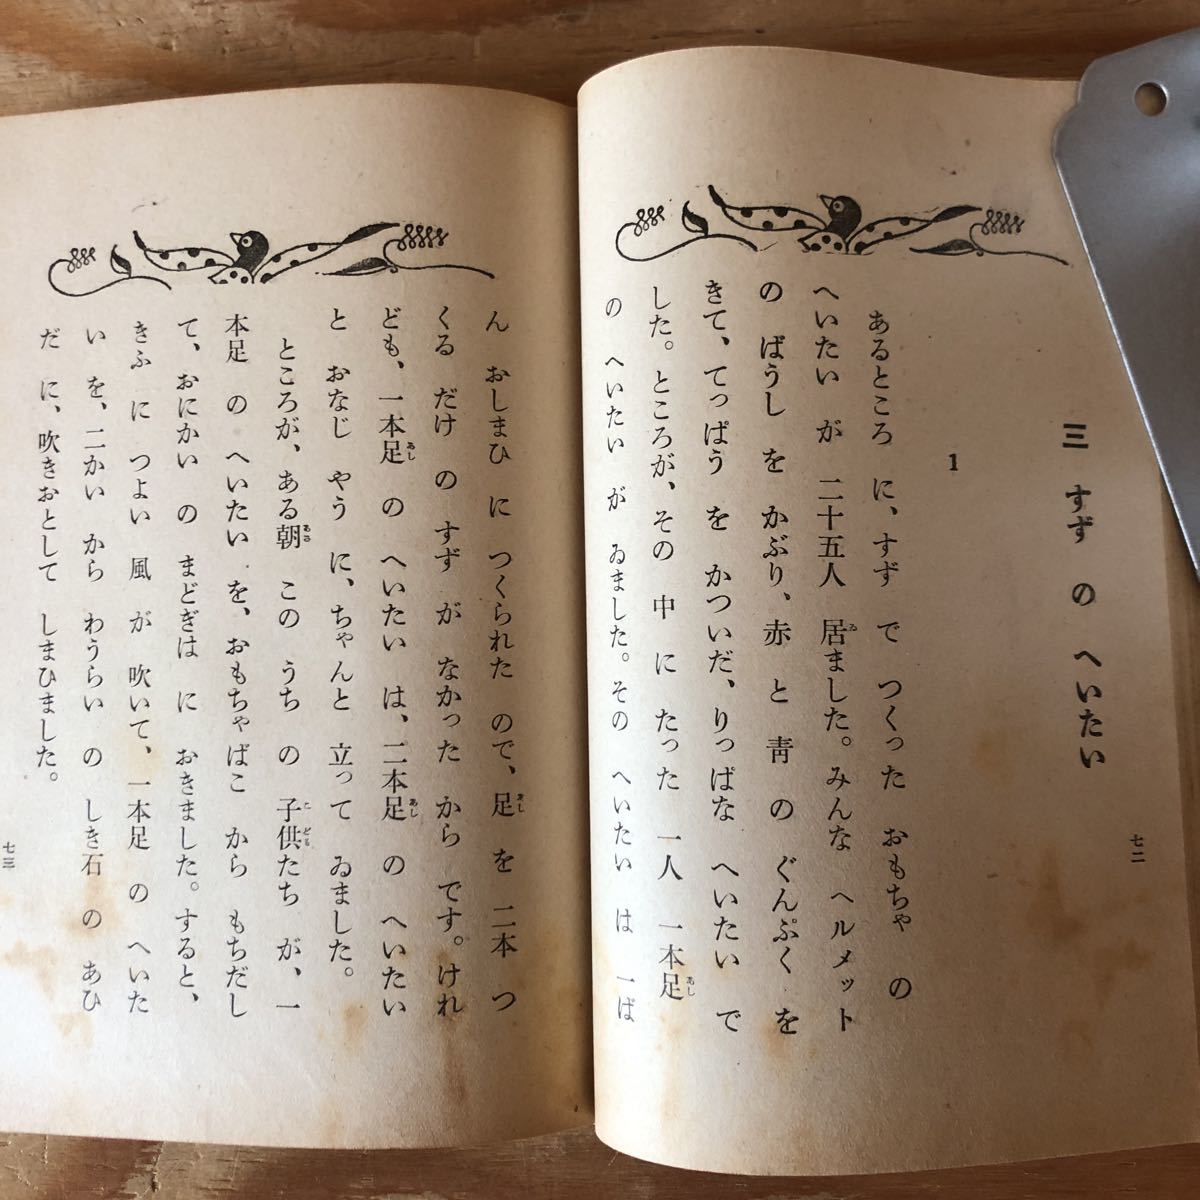 七二
三 すず の へいたい
1
あるところ に、すず で つくった おもちゃ の
へいたい が 二十五人 居ました。みんな ヘルメット
の ばうし を かぶり、赤 と 青 の ぐんぷく を
きて、てっぱう を かついだ、りっぱな へいたい で
した。ところが、その 中 に たった 一人 一本足
の へいたい が ゐました。その へいたい は 一ば
ん おしまひ に つくられた ので、足 を 二本 つ
くる だけ の すず が なかった から です。けれ
ども、一本足 の へいたい は、二本足 の へいたい
と おなじ やう に、ちゃんと 立って ゐました。
ところが、ある朝 この うち の 子供たち が、一
本足 の へいたい を、おもちゃばこ から もちだし
て、おにかい の まどぎは に おきました。すると、
きふ に つよい 風 が 吹いて、一本足 の へいた
い を、二かい から わうらい の しき石 の あひ
だ に、吹きおとして しまひました。
七三